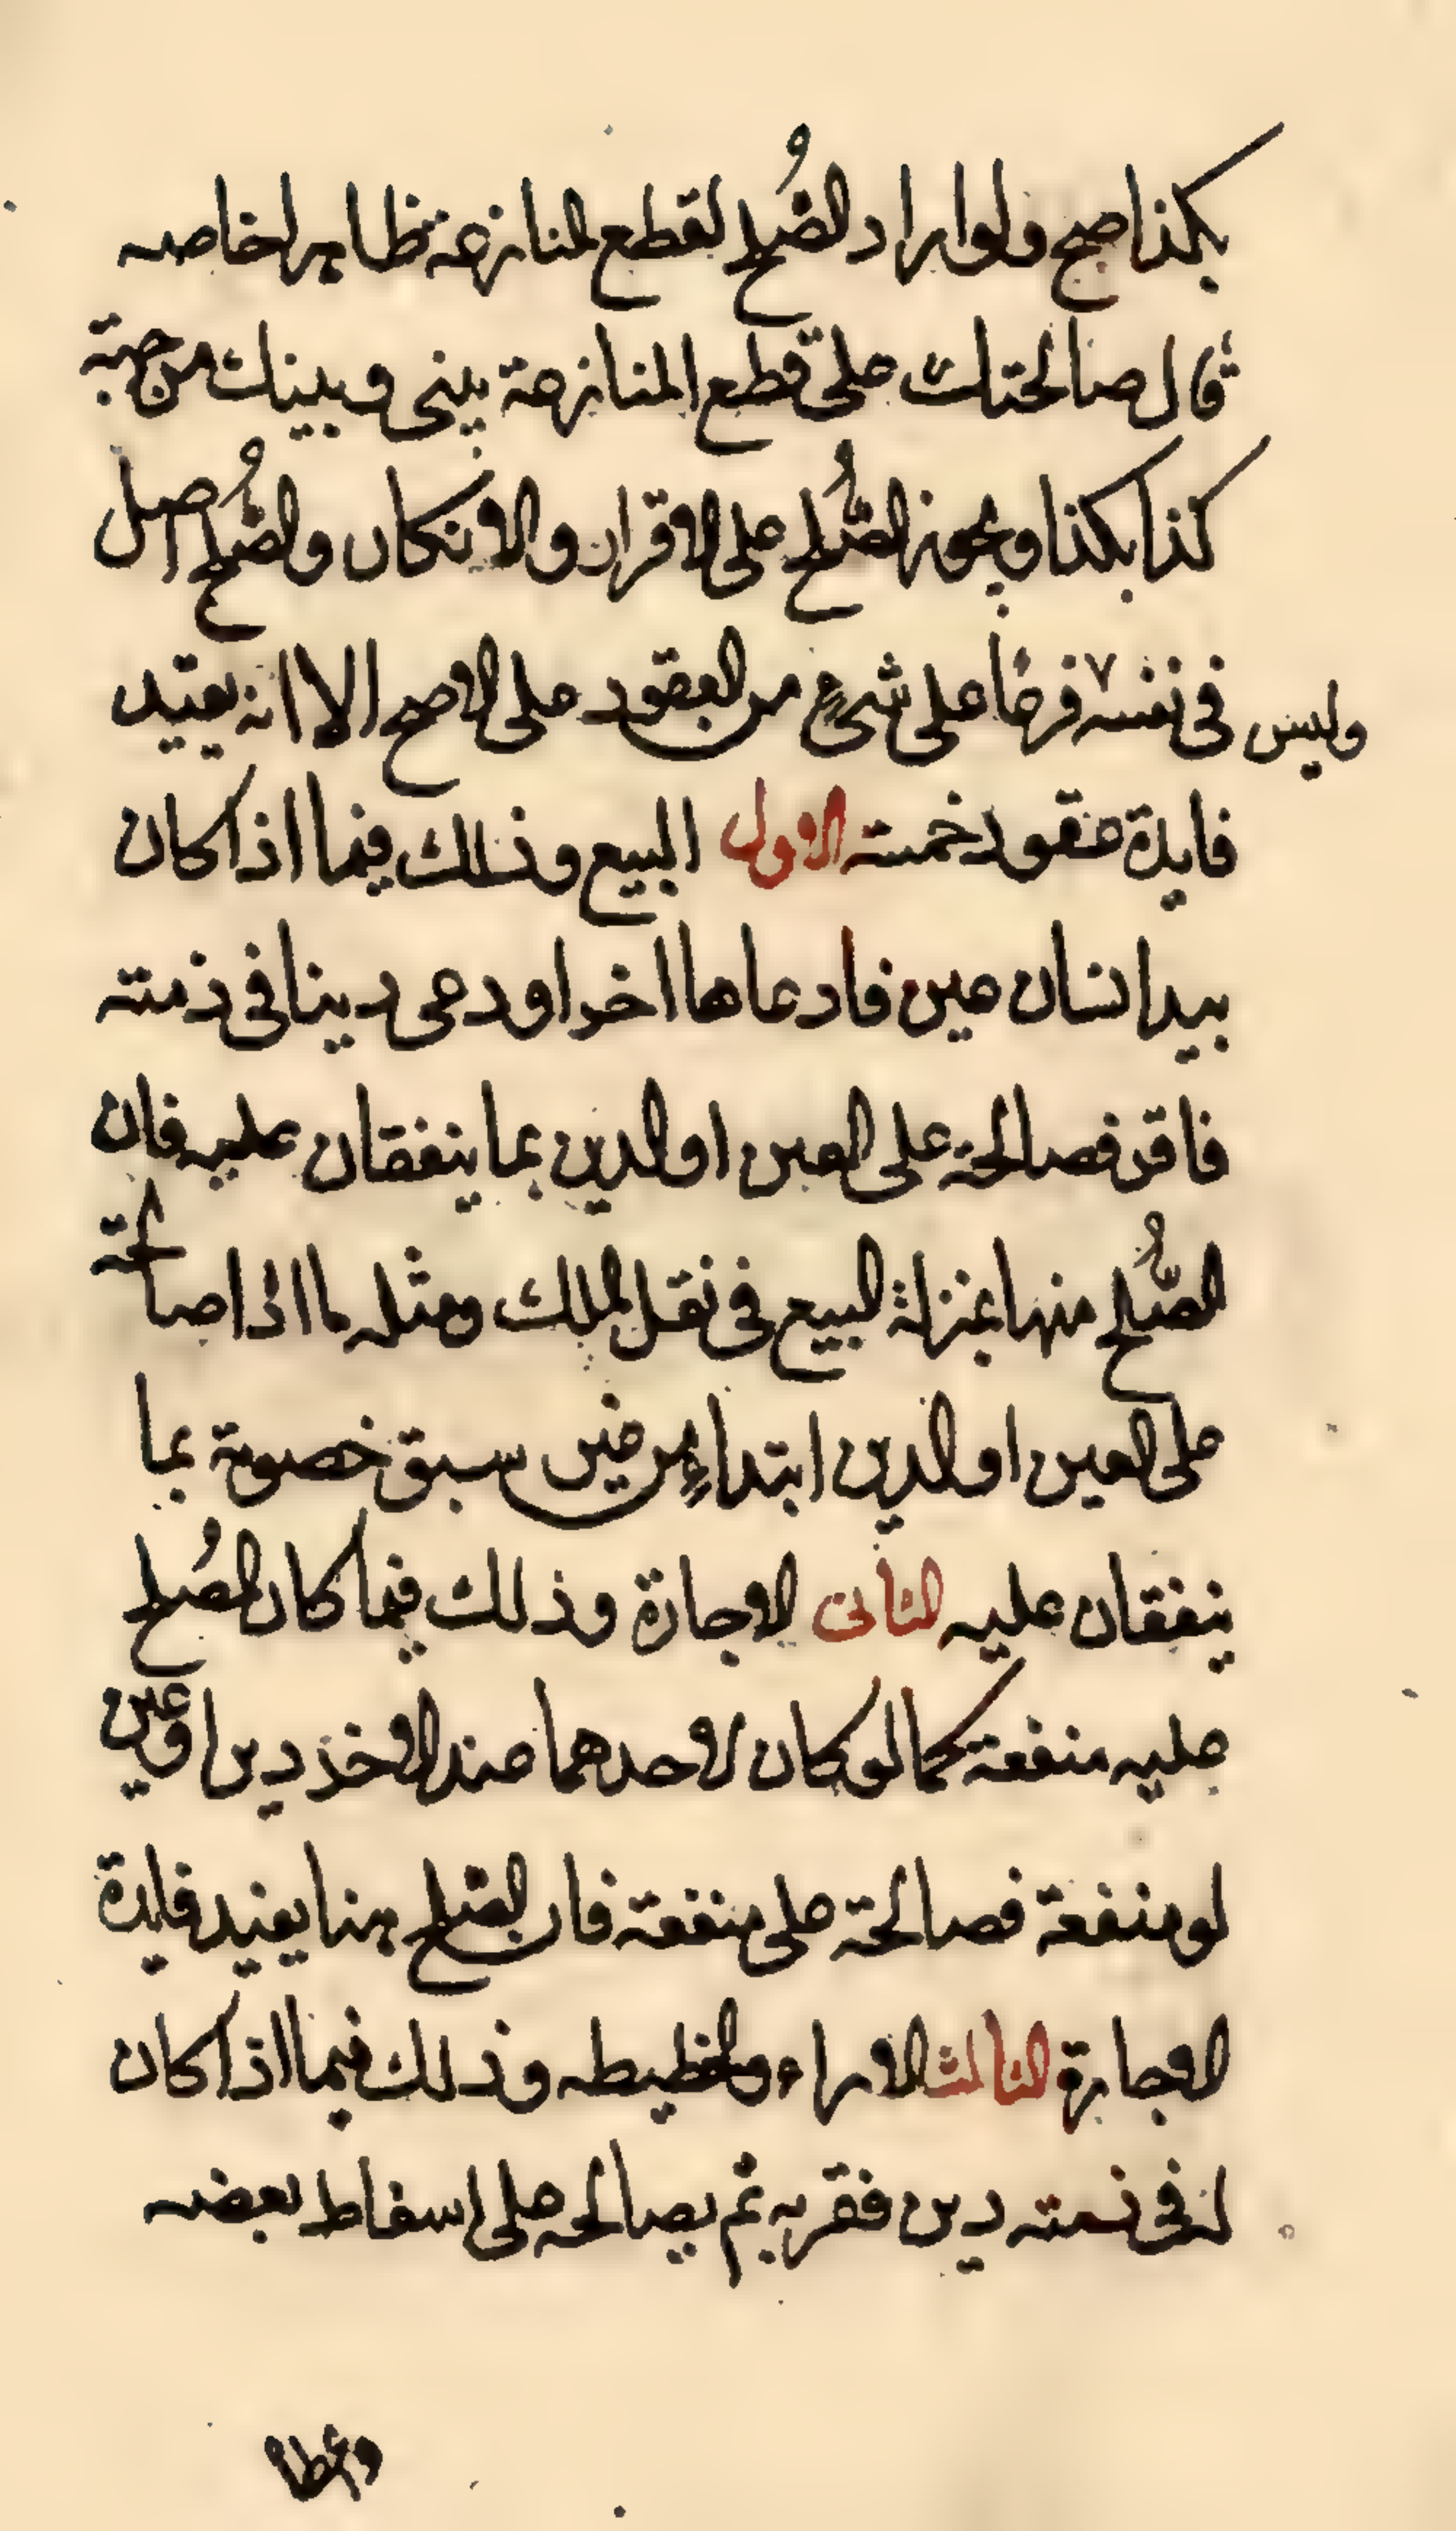 بكذا صح ولو اراد الصُلح لقطع المنازعة ظاهرا خاصه
قال صالحتك على قطع المنازعة بينى وبينك من جهة
كذا بكذا ويجوز الصُلح على الاقرار والانكار والصُلح اصل
وليس فى نفسه فرعا على شىءٍ من العقود على الاصح الا انه يفيد
فايدة عقود خمسة الاول البيع وذلك فيما اذا كان
بيد انسان عين فادعاها اخر او دعى دينا فى ذمته
فاقر فصالحه على العين او الدين بما يتفقان عليه فان
الصُلح منها بمنزلة البيع فى نقل الملك ومثله ما اذا صالحة
على العين او الدين ابتداءٍ من غير سبق خصومة بما
يتفقان عليه الثانى الاجارة وذلك فيما كان الصُلح
عليه منفعة كما لو كان لاحدهما عند الاخر دين او عين
لو منفعة فصالحة على منفعة فان الصلح هنا يفيد فايدة
الاجارة الثالث الابراء والحطيطه وذلك فيما اذا كان
له فى ذمته دين فقر به ثم يصالحه على اسقاط بعضه